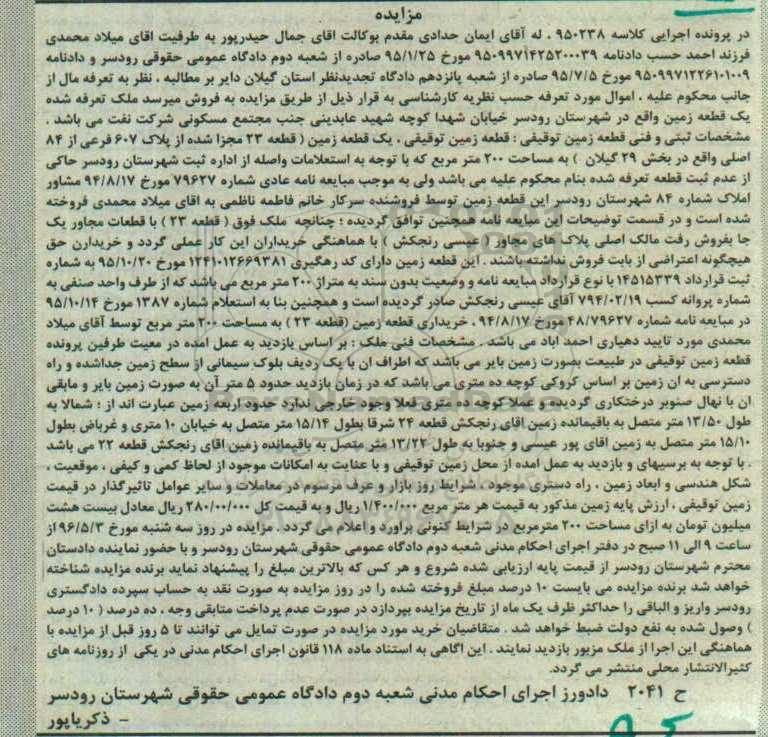 مزایده
در پرونده اجرایی کلاسه ۹۵۰۲۳۸ ، له آقای ایمان حدادی مقدم بوکالت اقای جمال حیدرپور به طرفیت اقای میلاد محمدی
فرزند احمد حسب دادنامه ۹۵۰۹۹۷۱۴۲۵۲۰۰۰۳۹ مورخ ۹۵/۱/۲۵ صادره از شعبه دوم دادگاه عمومی حقوقی رودسر و دادنامه
۹۵۰۹۹۷۱۲۲۶۱۰۱۰۰۹ مورخ ۹۵/۷/۵ صادره از شعبه پانزدهم دادگاه تجدیدنظر استان گیلان دایر بر مطالبه ، نظر به تعرفه مال از
جانب محکوم علیه ، اموال مورد تعرفه حسب نظریه کارشناسی به قرار ذیل از طریق مزایده به فروش میرسد ملک تعرفه شده
یک قطعه زمین واقع در شهرستان رودسر خیابان شهدا کوچه شهید عابدینی جنب مجتمع مسکونی شرکت نفت می باشد .
مشخصات ثبتی و فنی قطعه زمین توقیفی : قطعه زمین توقیفی ، یک قطعه زمین ( قطعه ۲۳ مجزا شده از پلاک ۶۰۷ فرعی از ۸۴
اصلی واقع در بخش ۲۹ گیلان ) به مساحت ۲۰۰ متر مربع که با توجه به استعلامات واصله از اداره ثبت شهرستان رودسر حاکی
از عدم ثبت قطعه تعرفه شده بنام محکوم علیه می باشد ولی به موجب مبایعه نامه عادی شماره ۷۹۶۲۷ مورخ ۹۴/۸/۱۷ مشاور
املاک شماره ۸۴ شهرستان رودسر این قطعه زمین توسط فروشنده سرکار خانم فاطمه ناظمی به اقای میلاد محمدی فروخته
شده است و در قسمت توضیحات این مبایعه نامه همچنین توافق گردیده ؛ چنانچه ملک فوق ( قطعه ۲۳ ) با قطعات مجاور یک
جا بفروش رفت مالک اصلی پلاک های مجاور (عیسی رنجکش ) با هماهنگی خریداران این کار عملی گردد و خریدارن حق
هیچگونه اعتراضی از بابت فروش نداشته باشند . این قطعه زمین دارای کد رهگیری ۱۲۴۱۰۱۲۶۶۹۳۸۱ مورخ ۹۵/۱۰/۲۰ به شماره
ثبت قرارداد ۱۴۵۱۵۳۳۹ با نوع قرارداد مبایعه نامه و وضعیت بدون سند به متراژ ۲۰۰ متر مربع می باشد که از طرف واحد صنفی به
شماره پروانه کسب ۷۹۴/۰۲/۱۹ آقای عیسی رنجکش صادر گردیده است و همچنین بنا به استعلام شماره ۱۳۸۷ مورخ ۹۵/۱۰/۱۴
در مبایعه نامه شماره ۴۸/۷۹۶۲۷ مورخ ۹۴/۸/۱۷ ، خریداری قطعه زمین (قطعه ۲۳ ) به مساحت ۲۰۰ متر مربع توسط آقای میلاد
محمدی مورد تایید دهیاری احمد اباد می باشد . مشخصات فنی ملک : بر اساس بازدید به عمل امده در معیت طرفین پرونده
قطعه زمین توقیفی در طبیعت بصورت زمین بایر می باشد که اطراف ان با یک ردیف بلوک سیمانی از سطح زمین جداشده و راه
دسترسی به ان زمین بر اساس کروکی کوچه ده متری می باشد که در زمان بازدید حدود ۵ متر آن به صورت زمین بایر و مابقی
ان با نهال صنوبر درختکاری گردیده و عملا کوچه ده متری فعلا وجود خارجی ندارد حدود اربعه زمین عبارت اند از ؛ شمالا به
طول ۱۳/۵۰ متر متصل به باقیمانده زمین اقای رنجکش قطعه ۲۴ شرقا بطول ۱۵/۱۴ متر متصل به خیابان ۱۰ متری و غرباض بطول
۱۵/۱۰ متر متصل به زمین اقای پور عیسی و جنوبا به طول ۱۳/۲۲ متر متصل به باقیمانده زمین اقای رنجکش قطعه ۲۲ می باشد
. با توجه به برسیهای و بازدید به عمل امده از محل زمین توقیفی و با عنایت به امکانات موجود از لحاظ کمی و کیفی ، موقعیت ،
شکل هندسی و ابعاد زمین ، راه دستری موجود ، شرایط روز بازار و عرف مرسوم در معاملات و سایر عوامل تاثیرگذار در قیمت
زمین توقیفی ، ارزش پایه زمین مذکور به قیمت هر متر مربع ۱/۴۰۰/۰۰۰ ریال و به قیمت کل ۲۸۰/۰۰/۰۰۰ ریال معادل بیست هشت
میلیون تومان به ازای مساحت ۲۰۰ مترمربع در شرایط کنونی براورد و اعلام می گردد . مزایده در روز سه شنبه مورخ ۹۶/۵/۳ از
ساعت ۹ الی ۱۱ صبح در دفتر اجرای احکام مدنی شعبه دوم دادگاه عمومی حقوقی شهرستان رودسر و با حضور نماینده دادستان
محترم شهرستان رودسر از قیمت پایه ارزیابی شده شروع و هر کس که بالاترین مبلغ را پیشنهاد نماید برنده مزایده شناخته
خواهد شد برنده مزایده می بایست ۱۰ درصد مبلغ فروخته شده را در روز مزایده به صورت نقد به حساب سپرده دادگستری
رودسر واریز و الباقی را حداکثر ظرف یک ماه از تاریخ مزایده بپردازد در صورت عدم پرداخت متابقی وجه ، ده درصد ( ۱۰ درصد
) وصول شده به نفع دولت ضبط خواهد شد . متقاضیان خرید مورد مزایده در صورت تمایل می توانند تا ۵ روز قبل از مزایده با
هماهنگی این اجرا از ملک مزبور بازدید نمایند . این اگاهی به استناد ماده ۱۱۸ قانون اجرای احکام مدنی در یکی از روزنامه های
کثیرالانتشار محلی منتشر می گردد.
ح ۲۰۴۱ دادورز اجرای احکام مدنی شعبه دوم دادگاه عمومی حقوقی شهرستان رودسر
– ذکریاپور